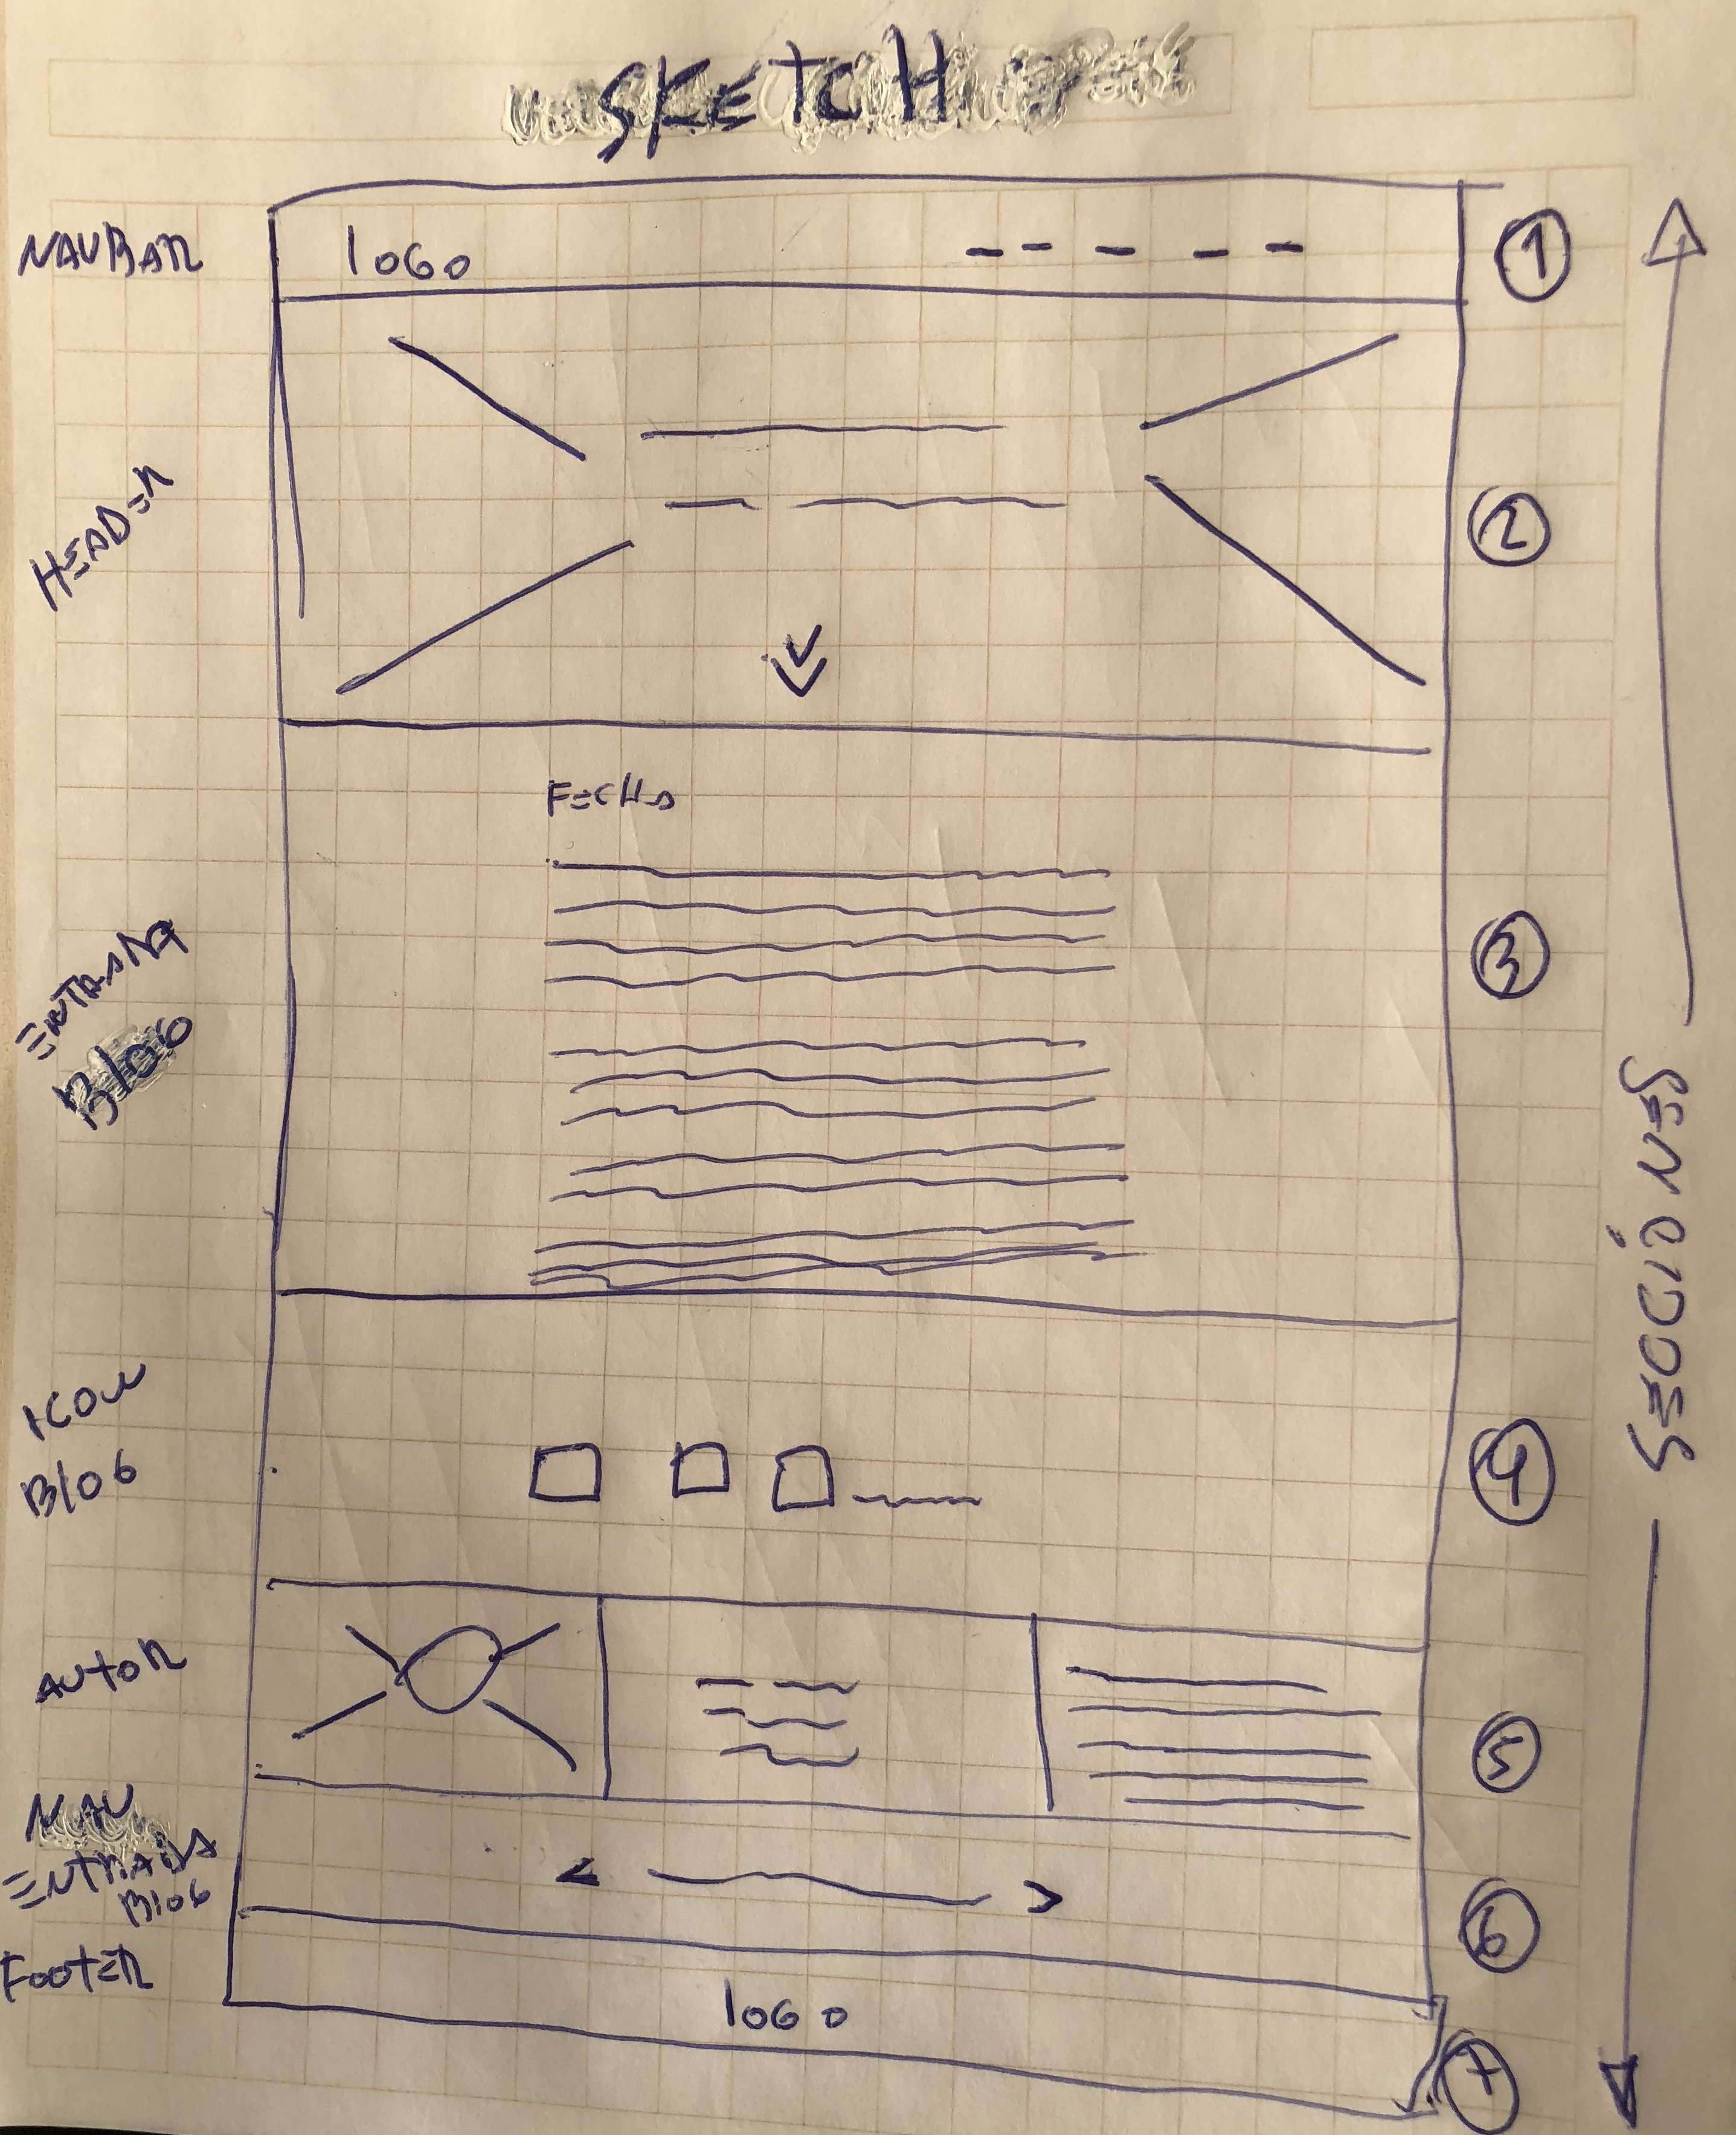 SKETCH
NAVBAR
logo
1
HEADER
2
FECHA
ENTRADA
Blog
3
SECCIONES
ICON
Blog
4
AUTOR
5
NAV
ENTRADA
Blog
6
FOOTER
logo
7